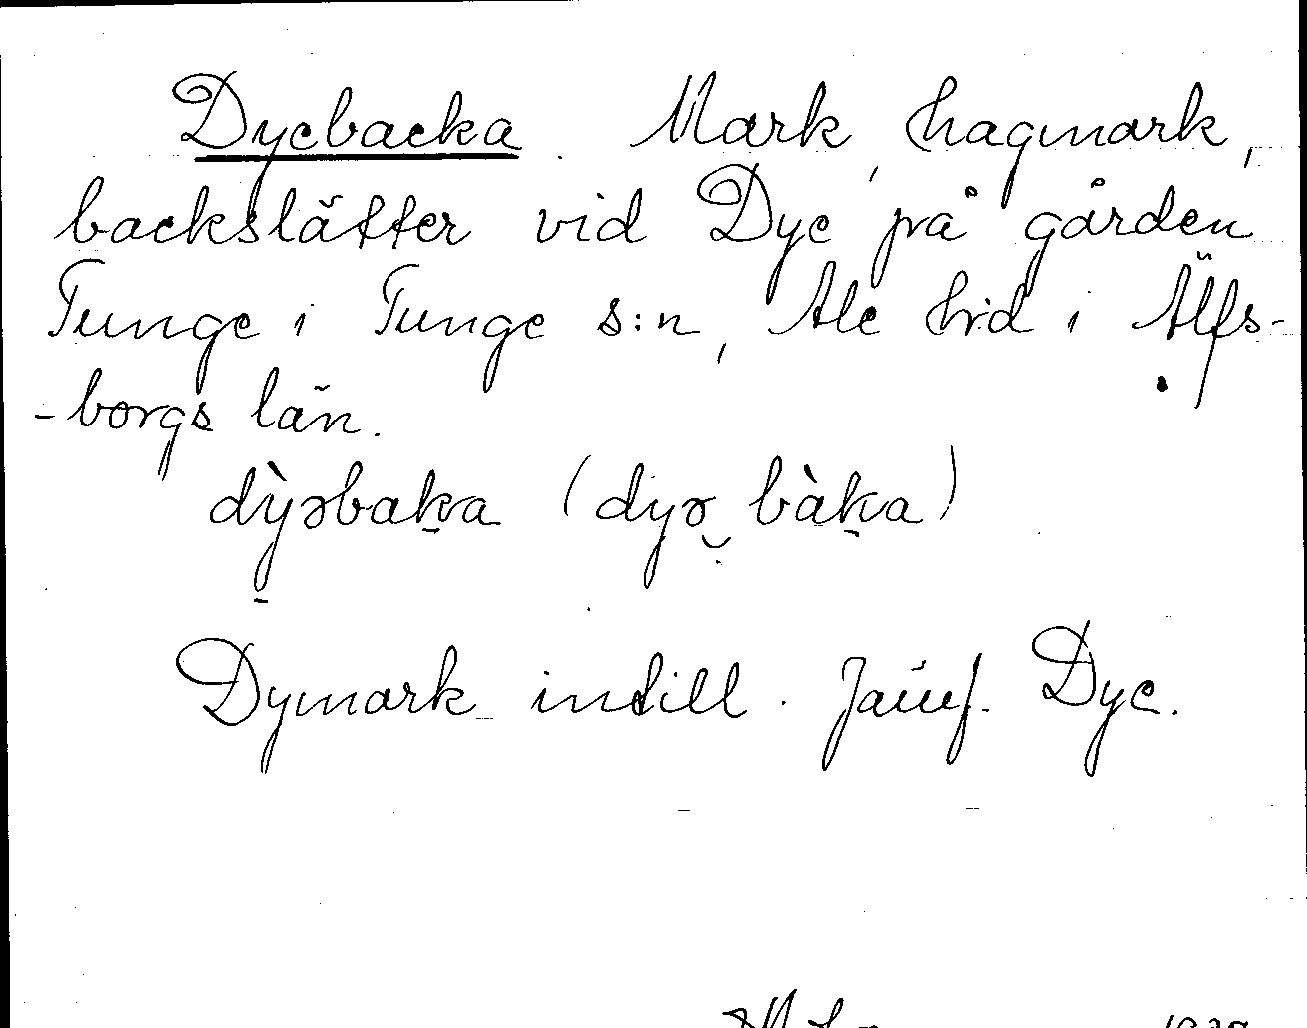 Dyebacka. Mark, hagmark,
backslätter vid Dye på gården
Tunge i Tunge s:n, Ale hrd i Älfs-
-borgs län.
dỳəbaka (dyə bàka)
Dymark intill. Jämf. Dye.